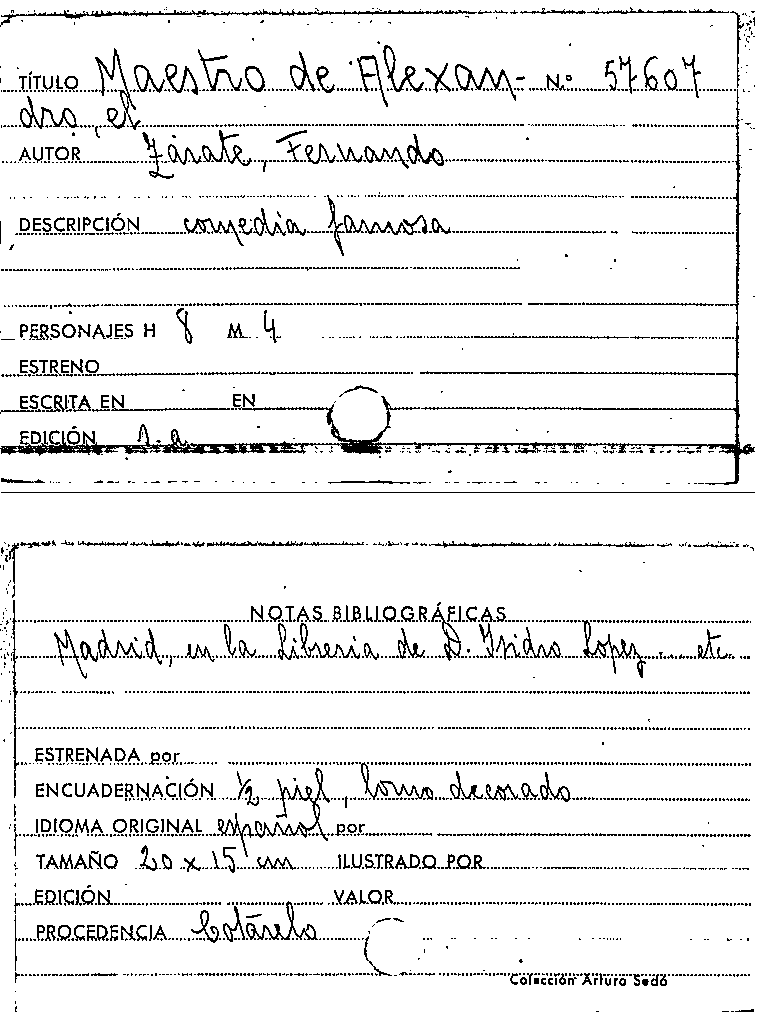 TÍTULO Maestro de Alexan- Nº 57607
dro, el
AUTOR Zárate, Fernando
DESCRIPCIÓN comedia famosa
PERSONAJES H 8 M 4
ESTRENO
ESCRITA EN EN
EDICIÓN s.a.
NOTAS BIBLIOGRÁFICAS
Madrid, en la Libreria de D. Isidro Lopez .... etc
ESTRENADA por
ENCUADERNACIÓN ½ piel, lomo decorado
IDIOMA ORIGINAL español por
TAMAÑO 20 x 15 cm ILUSTRADO POR
EDICIÓN VALOR
PROCEDENCIA Cotárelo
Colección Arturo Sedó